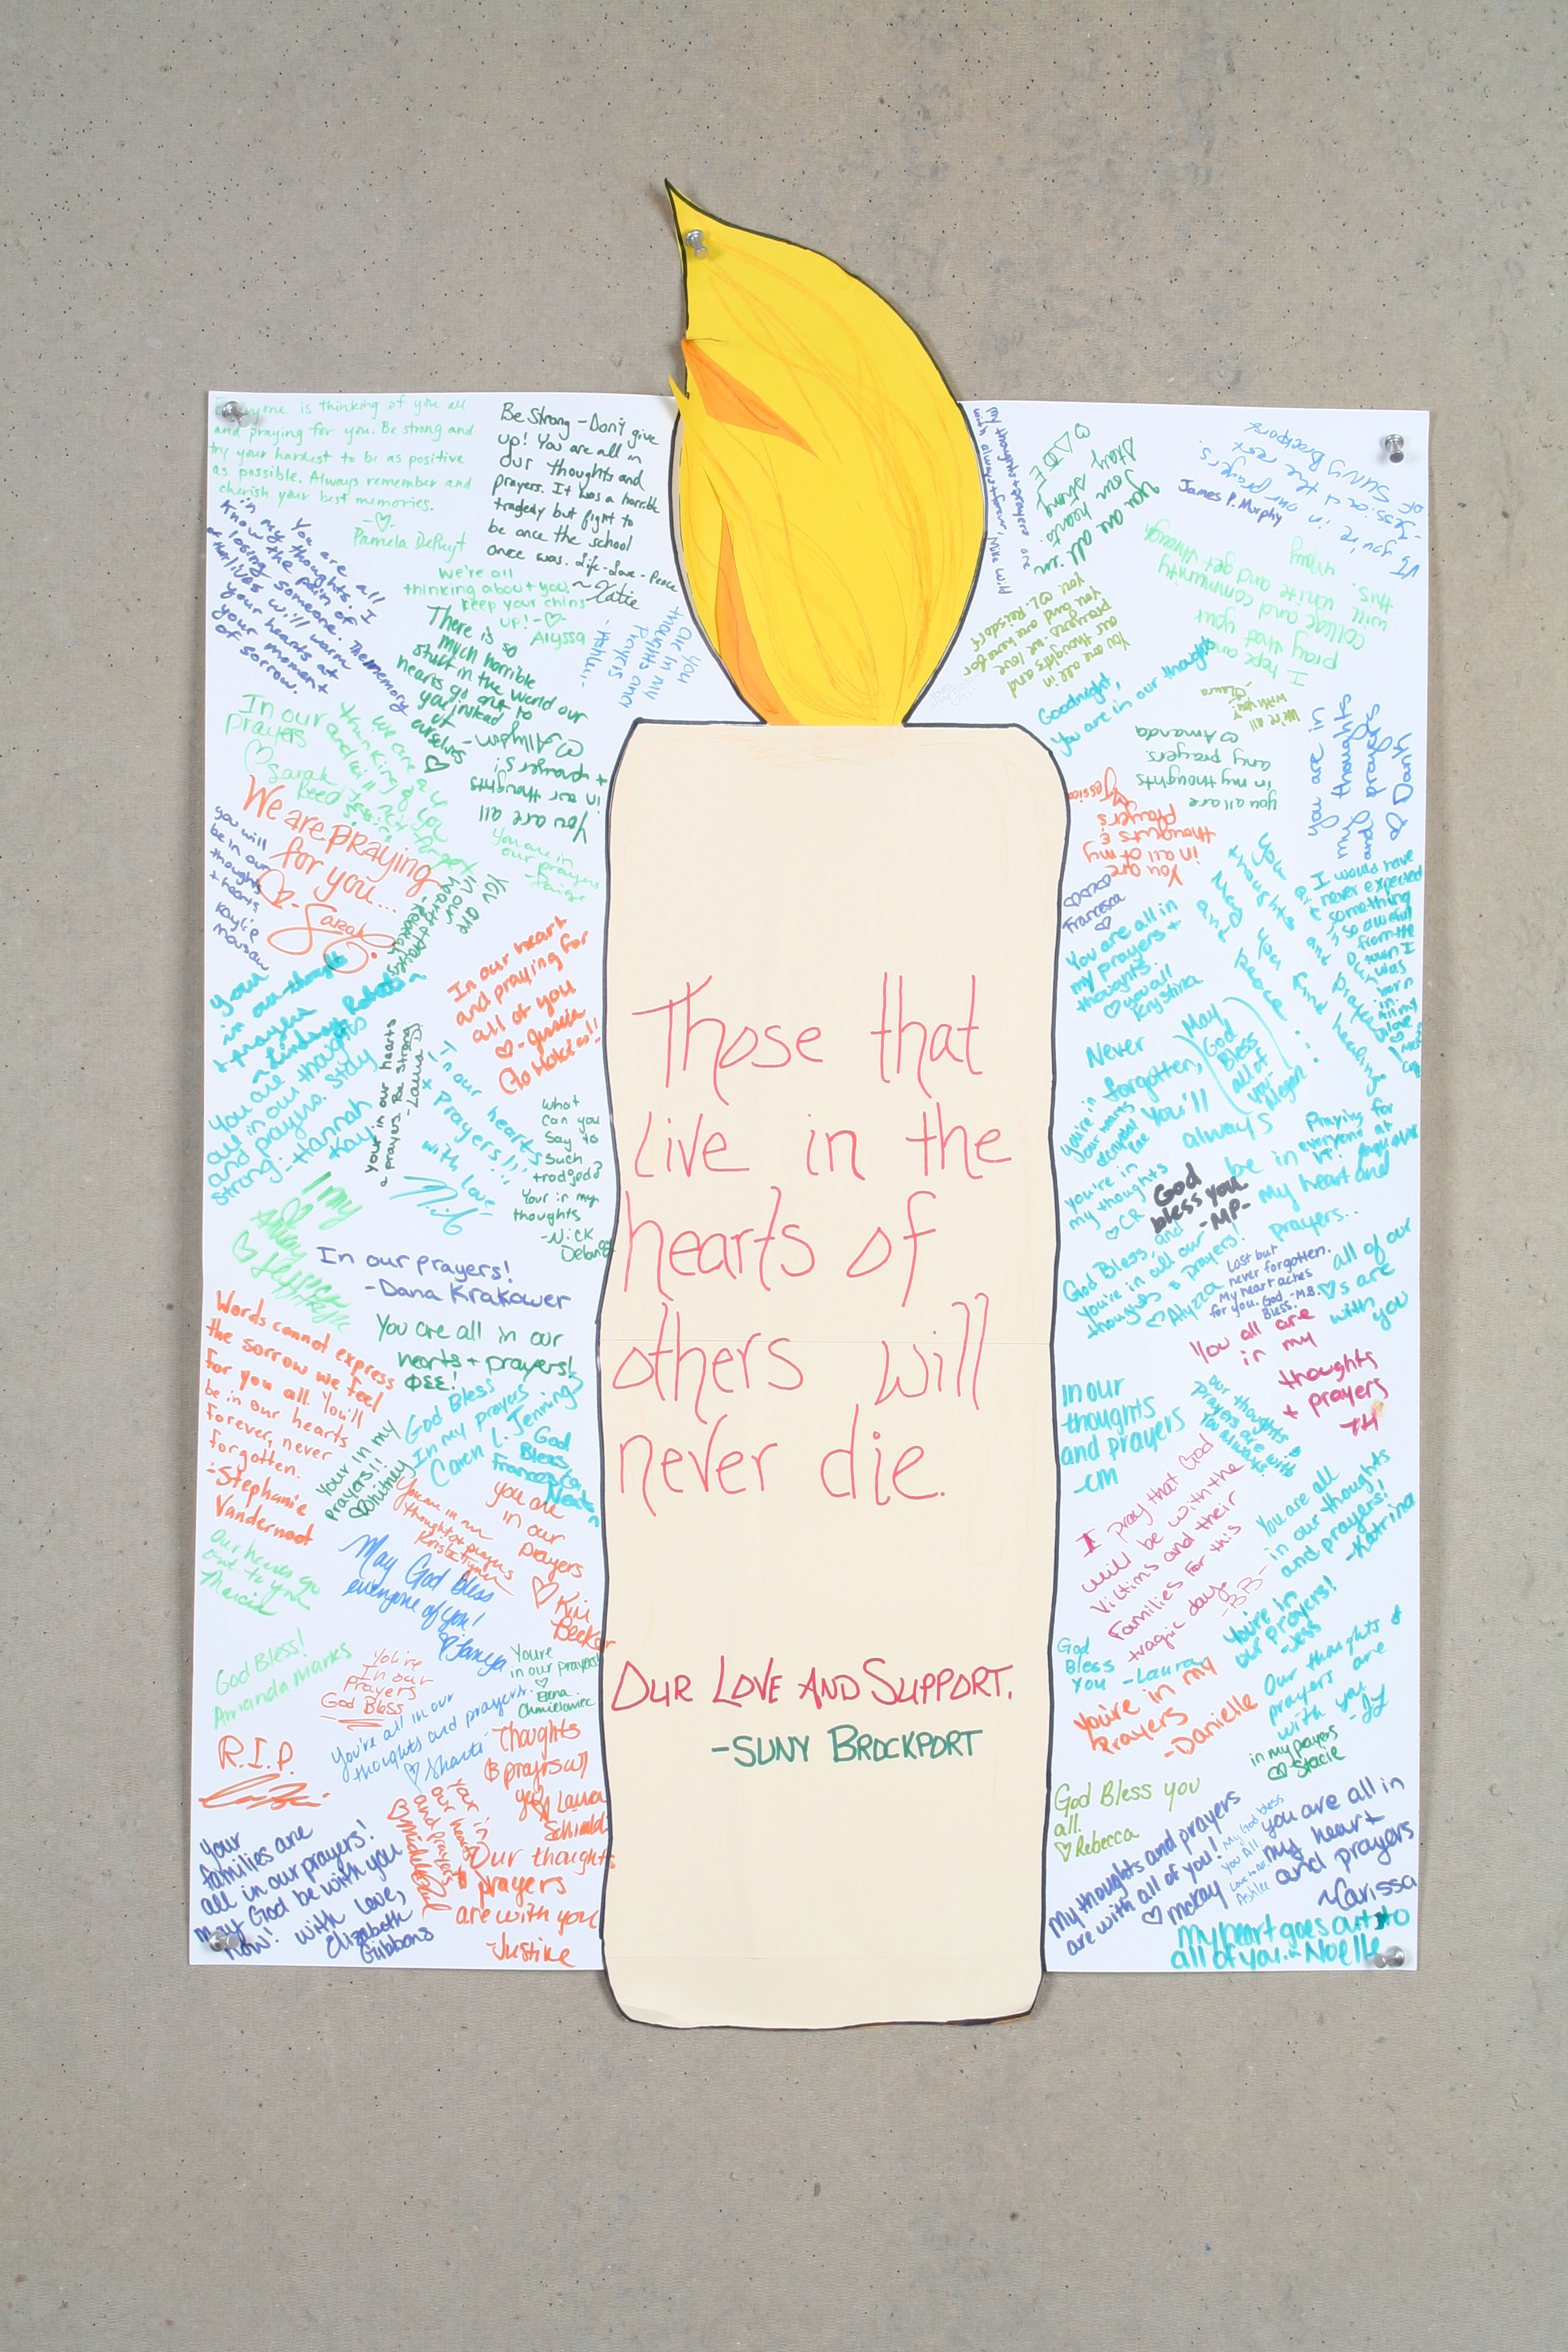 Everyone is thinking of you all
and praying for you. Be strong and
try your hardest to be as positive
as possible. Always remember and
cherish your best memories.
-♡-
Pamela DeRuyt
Be Strong - Don't give
up! You are all in
our thoughts and
prayers. It was a horrible
tragedy but fight to
be once the school
once was. Life-Love-Peace
~Katie
You are all
in my thoughts. I
know the pain of
losing someone. The memory
of their lives will warm
your hearts at
your moment
of sorrow.
We're all
thinking about you.
keep your chins
up! -♡-
Alyssa
There is so
much horrible
stuff in the world our
hearts go out to
you instead
of
ourselves
♡
you
are in my
thoughts and
Prayers
In our
prayers
♡Sarah
Reed
You are all
in our thoughts
+ prayers!
We are PRAYING
for you...
♡-Sarah
you will
be in our
thoughts
+ hearts
Kaylie
You are in
our prayers
-Paige
In our heart
and praying for
all of you
Go Hokies!!
your
in our thoughts
+ prayers
~Lindsay
You are
all in our thoughts
and prayers. Stay
strong. -Hannah
Kay
your in our hearts
& prayers. Be strong
-Laura D.
In our hearts
+ Prayers!!
with love
What
can you
say to
such
Your in my
thoughts
-Nick
In our prayers!
-Dana Krakower
You are all in our
hearts + prayers!
ΦΣΣ!
Words cannot express
the sorrow we feel
for you all. You'll
be in our hearts
forever, never
forgotten.
-Stephanie
Vandernoot
God Bless
In my prayers
Caren L. Jennings
God
Bless
Your in my
prayers!!
♡Whitney
you are
in our
prayers
♡ Kiri
Becker
Our hearts go
out to you
Marcia
May God bless
everyone of you!
♡Tanya
God Bless!
Amanda Marks
You're
In our
prayers
God Bless
Youre
in our prayers!
♡
Elena
Chmielowiec
You're all in our
thoughts and prayers.
♡ Shanti
R.I.P.
Thoughts
& prayrs w/
ya
♡ Laura
Schmidt
Your in
our hearts
and prayers
Your
families are
all in our prayers!
May God be with you
now! With love,
Elizabeth
Gibbons
Our thoughts
prayers
are with you
-Justine
Those that
live in the
hearts of
others will
never die.
OUR LOVE AND SUPPORT.
-SUNY BROCKPORT
My thoughts + prayers are
with always + forever, Nikki M
You are all in
our hearts
Stay strong
VT's you're in our prayers
-Jessica & the rest
of SUNY Brockport
James P. Murphy
You are all in
our thoughts and
prayers we love
you and are here for
you. ♡L. Reisdorf
I hope and
pray that your
college and community
will unite and get through
this.
Goodnight,
you are in our thoughts
We're all
with you
-Laura
you all are
in my thoughts
any prayers
♡Amanda
you are in
my thoughts
and prayers
♡ Dank
You are
in all of my
thoughts &
Prayers
Jessica
Francesca
♡
You are all in
my prayers +
thoughts.
♡ you all!
Krystina
I would have
never expected
something
so awful
from the
town I
was
born
in.
May
God
Bless
all of
you-
Megan
Never
forgotten,
you'll
always
be in
my heart and
prayers..
Praying for
everyone at
VT!
you're in
my thoughts
♡CR
God
bless you
-MP-
God Bless, and
you're in all our
thoughts & prayers!
♡Alyzza
Lost but
never forgotten.
My heart aches
for you. God
Bless. -M.B.
all of our
♡s are
with you
You all are
in my
thoughts
+ prayers
TH
In our
thoughts
and prayers
-CM
Our thoughts &
prayers are with
you always
I pray that God
will be with the
victims and their
families for this
tragic day
-BB-
You are all
in our thoughts
and prayers!
-Katrina
You're in
our prayers!
-Jess
God
Bless
you -Laura
You're in my
Prayers
-Danielle
Our thoughts &
prayers are
with you
-JJ
in my prayers
♡ Stacie
God Bless you
all.
♡Rebecca
My thoughts and prayers
are with all of you!
♡ McKay
May God bless
You All
Love
Ashlee
you are all in
my heart
and prayers
~Carissa
My heart goes out to
all of you. - Noelle